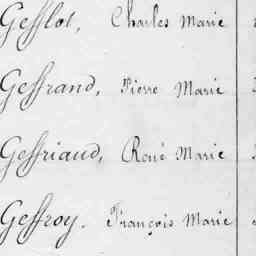 Gefflot, Charles Marie
Geffrand, Pierre Marie
Geffriaud, René Marie
Geffroy, François Marie